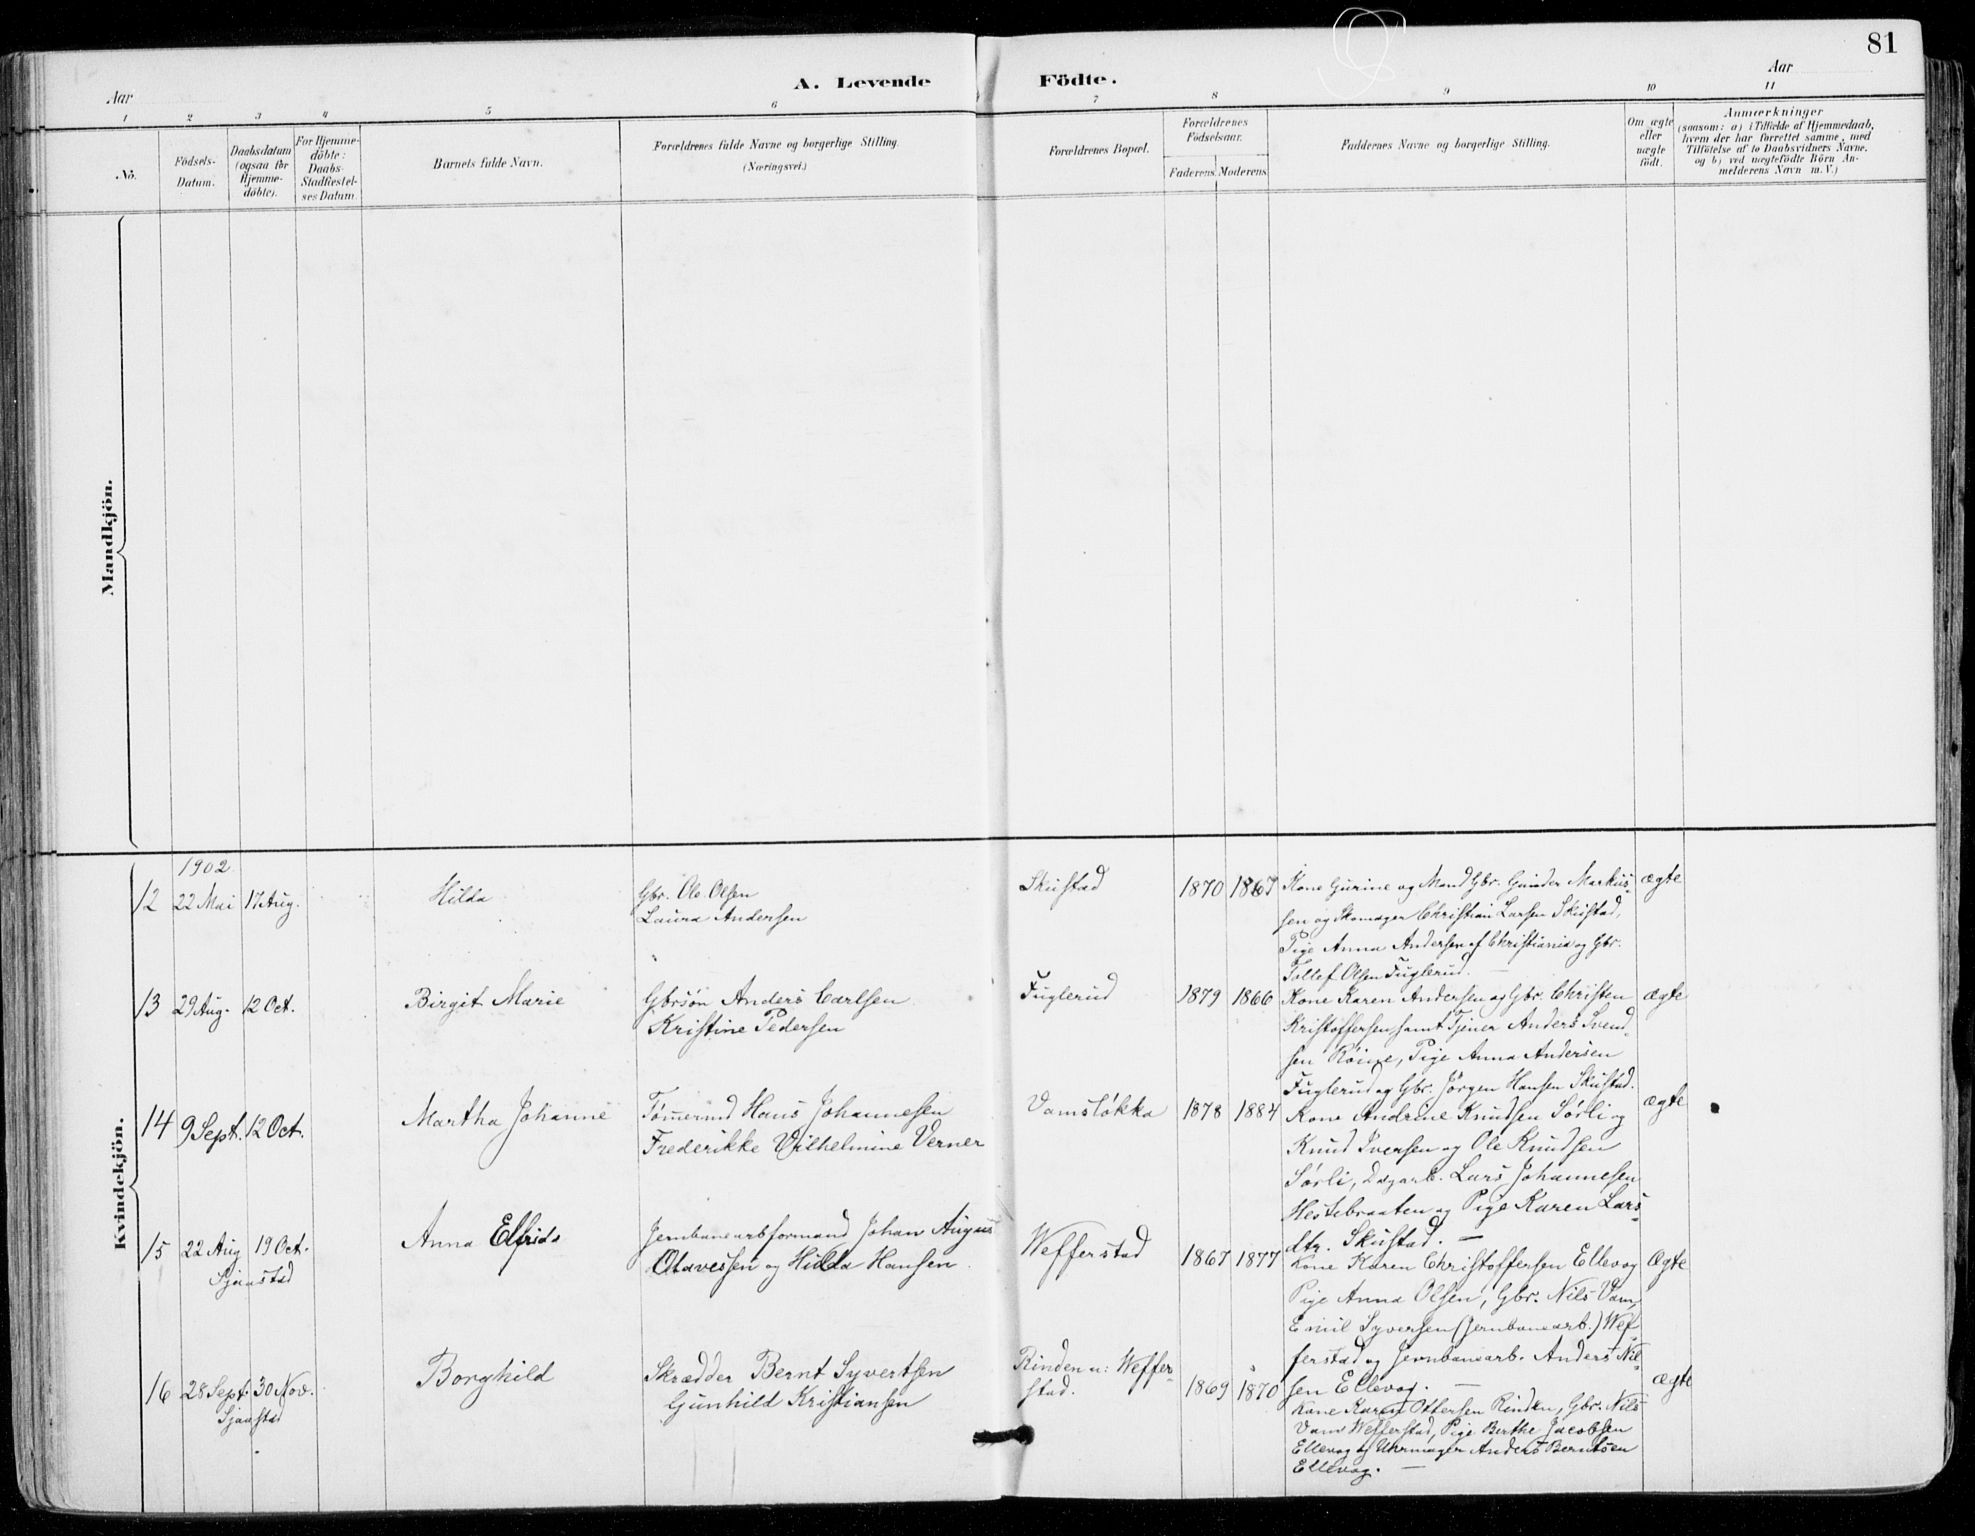 81
A. Levende Födte.
Aar
Aar
1 2 3 4 5 6 7 8 9 10 11
No.
Födsels-
Datum.
Daabsdatum
(ogsaa for
Hjemme-
döbte).
For Hjemme-
döbte:
Daabs-
Stadfæstel-
ses Datum.
Barnets fulde Navn.
Forældrenes fulde Navne og borgerlige Stilling.
(Næringsvei.)
Forældrenes Bopæl.
Forældrenes
Födselsaar.
Faderens. Moderens.
Faddernes Navne og borgerlige Stilling.
Om ægte
eller
uægte
födt.
Anmærkninger
(saasom: a) i Tilfælde af Hjemmedaab,
hvem der har forrettet samme, med
Tilföielse af to Daabsvidners Navne,
og b) ved uægtefödte Börn An-
melderens Navn m. V.)
Mandkjön.
Kvindekjön.
1902
12 22 Mai 17 Aug. Hilda
Gbr. Ole Olsen
Laura Andersen
Skustad 1870 1867
Kone Gurine og Mand Gbr. Gunder Markus-
sen og Skomager Christian Larsen Skustad,
Pige Anna Andersen af Christiania og Gbr.
Tollef Olsen Fuglerud. —
ægte
13 29 Aug. 12 Oct. Birgit Marie
Gbrsön Anders Carlsen
Kristine Pedersen
Fuglerud 1879 1866
Kone Karen Andersen og Gbr. Christen
Kristoffersen samt Tjener Anders Svend-
sen Röine, Pige Anna Andersen
Fuglerud og Gbr. Jörgen Hansen Skustad.
ægte
14 9 Sept. 12 Oct. Martha Johanne
Tömmermd Hans Johannesen
Frederikke Vilhelmine Verner
Vamslökka 1878 1884
Kone Andrine Knudsen Sörli og
Knud Iversen og Ole Knudsen
Sörli, Dagarb. Lars Johannesen
Hestebraaten og Pige Karen Lars-
dtr. Skustad. —
ægte
15 22 Aug 19 Oct.
Sjaastad
Anna Elfrida
Jernbanearbformand Johan August
Olavessen og Hilda Hansen.
Wefferstad 1867 1877
Kone Karen Christoffersen Ellevog
Pige Anna Olsen, Gbr. Nils Vam,
Emil Syversen (Jernbanearb.) Wef
ferstad og Jernbanearb. Anders Nil-
sen Ellevog. —
Ægte
16 28 Sept. 30 Nov.
Sjaastad
Borghild
Skrædder Bernt Syvertsen
Gunhild Kristiansen
Rinden u: Weffer-
stad.
1869 1870
Kone Karen Ottersen Rinden, Gbr. Nils
Vam Wefferstad, Pige Berthe Jacobsen
Ellevog og Uhrmager Anders Berntsen
Ellevog. —
ægte